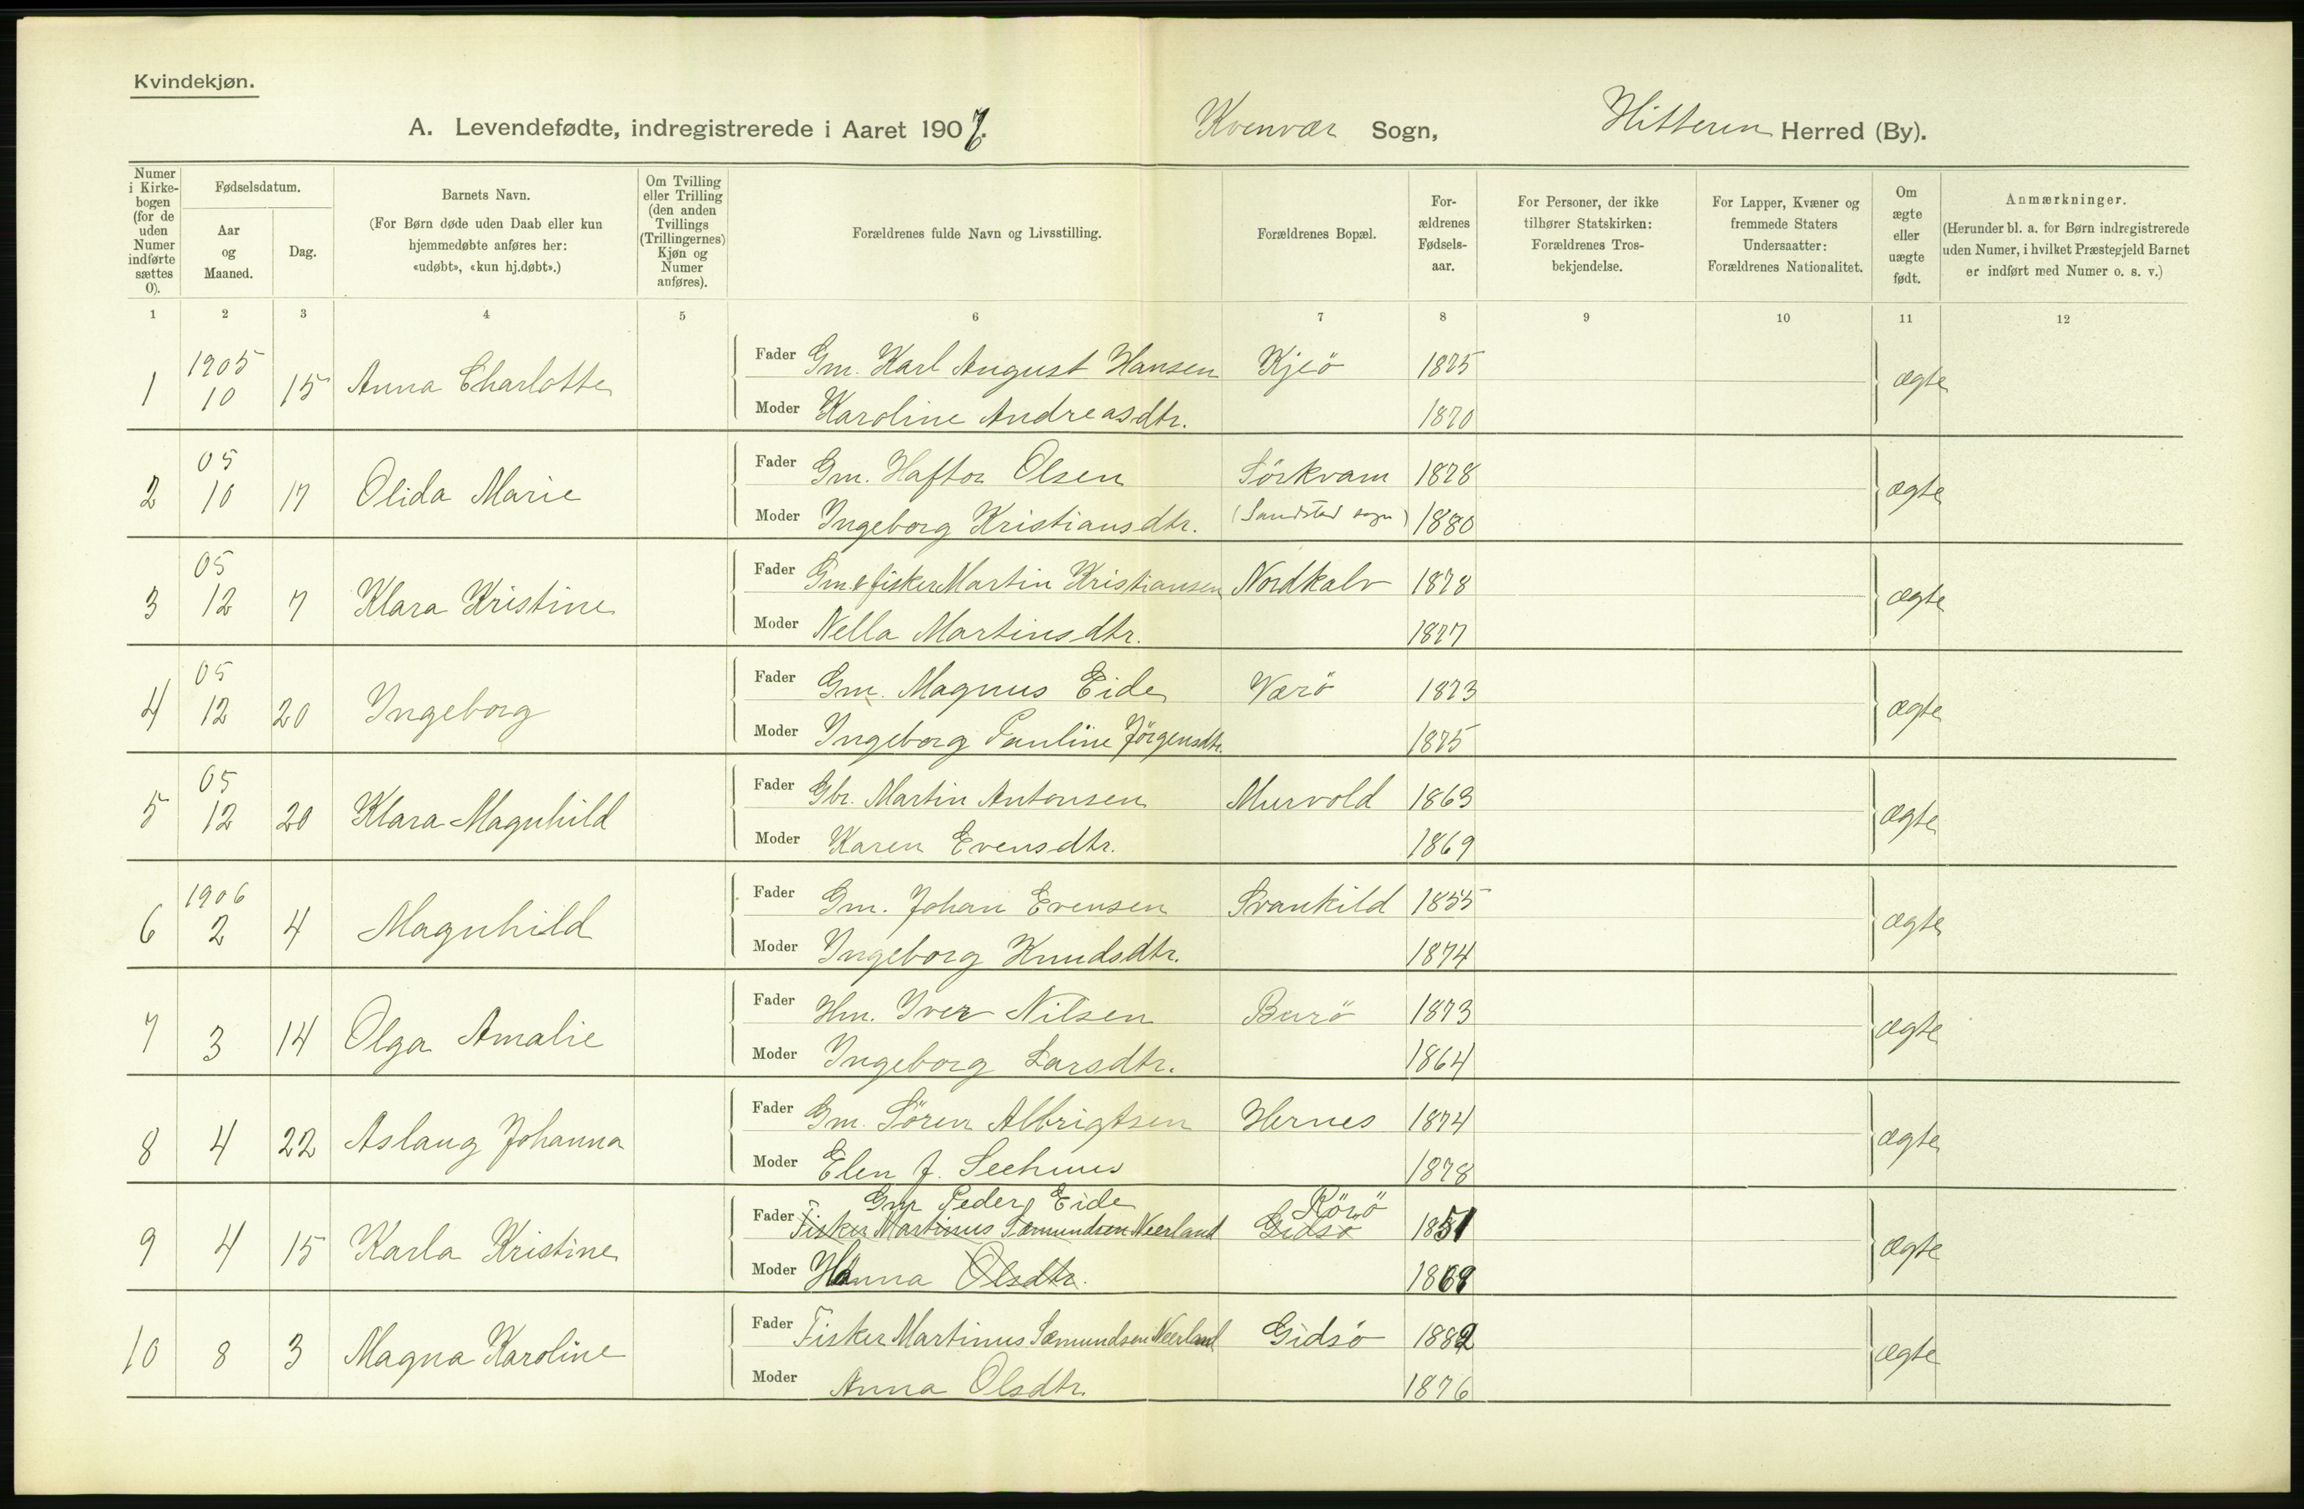 Kvindekjøn.
A. Levendefødte, indregistrerede i Aaret 190
Kvenvær Sogn, Hitteren Herred (By).
Numer i Kirkebogen (for de uden Numer indførte sættes 0).
Fødselsdatum.
Aar og Maaned.
Dag.
Barnets Navn.
(For Børn døde uden Daab eller kun hjemmedøbte anføres her: «udøbt», «kun hj.døbt».)
Om Tvilling eller Trilling (den anden Tvillings (Trillingernes) Kjøn og Numer anføres).
Forældrenes fulde Navn og Livsstilling.
Forældrenes Bopæl.
Forældrenes Fødselsaar.
For Personer, der ikke tilhører Statskirken: Forældrenes Trosbekjendelse.
For Lapper, Kvæner og fremmede Staters Undersaatter: Forældrenes Nationalitet.
Om ægte eller uægte født.
Anmærkninger.
(Herunder bl. a. for Børn indregistrerede uden Numer, i hvilket Præstegjeld Barnet er indført med Numer o. s. v.)
1 2 3 4 5 6 7 8 9 10 11 12
1 1905 10 15 Anna Charlotte Fader Gm. Karl August Hansen Kjeö 1875 ægte
Moder Karoline Andreasdtr. 1870
2 05 10 17 Olida Marie Fader Gm. Haftor Olsen Sörkvam 1878 ægte
Moder Ingeborg Kristiansdtr. (Sandstad sogn) 1880
3 05 12 7 Klara Kristine Fader Gm. & fisker Martin Kristiansen Nordkalv 1878 ægte
Moder Nella Martinsdtr. 1877
4 05 12 20 Ingeborg Fader Gm. Magnus Eide Værö 1873 ægte
Moder Ingeborg Pauline Jörgensdtr. 1875
5 05 12 20 Klara Magnhild Fader Gbr. Martin Antonsen Murvold 1863 ægte
Moder Karen Evensdtr. 1869
6 1906 2 4 Magnhild Fader Gm. Johan Evensen Svankild 1855 ægte
Moder Ingeborg Knudsdtr. 1874
7 3 14 Olga Amalie Fader Hm. Iver Nilsen Burö 1873 ægte
Moder Ingeborg Larsdtr. 1864
8 4 22 Aslaug Johanna Fader Gm. Sören Albrigtsen Hernes 1874 ægte
Moder Elen J. Seehuus 1878
Gm Peder Eide Rörö
9 4 15 Karla Kristine Fader Fisker Martinus Sæmundsen Neerland Gidsö 1851 ægte
Moder Hanna Olsdtr. 1869
10 8 3 Magna Karoline Fader Fisker Martinus Sæmundsen Neerland Gidsö 1882 ægte
Moder Anna Olsdtr. 1876